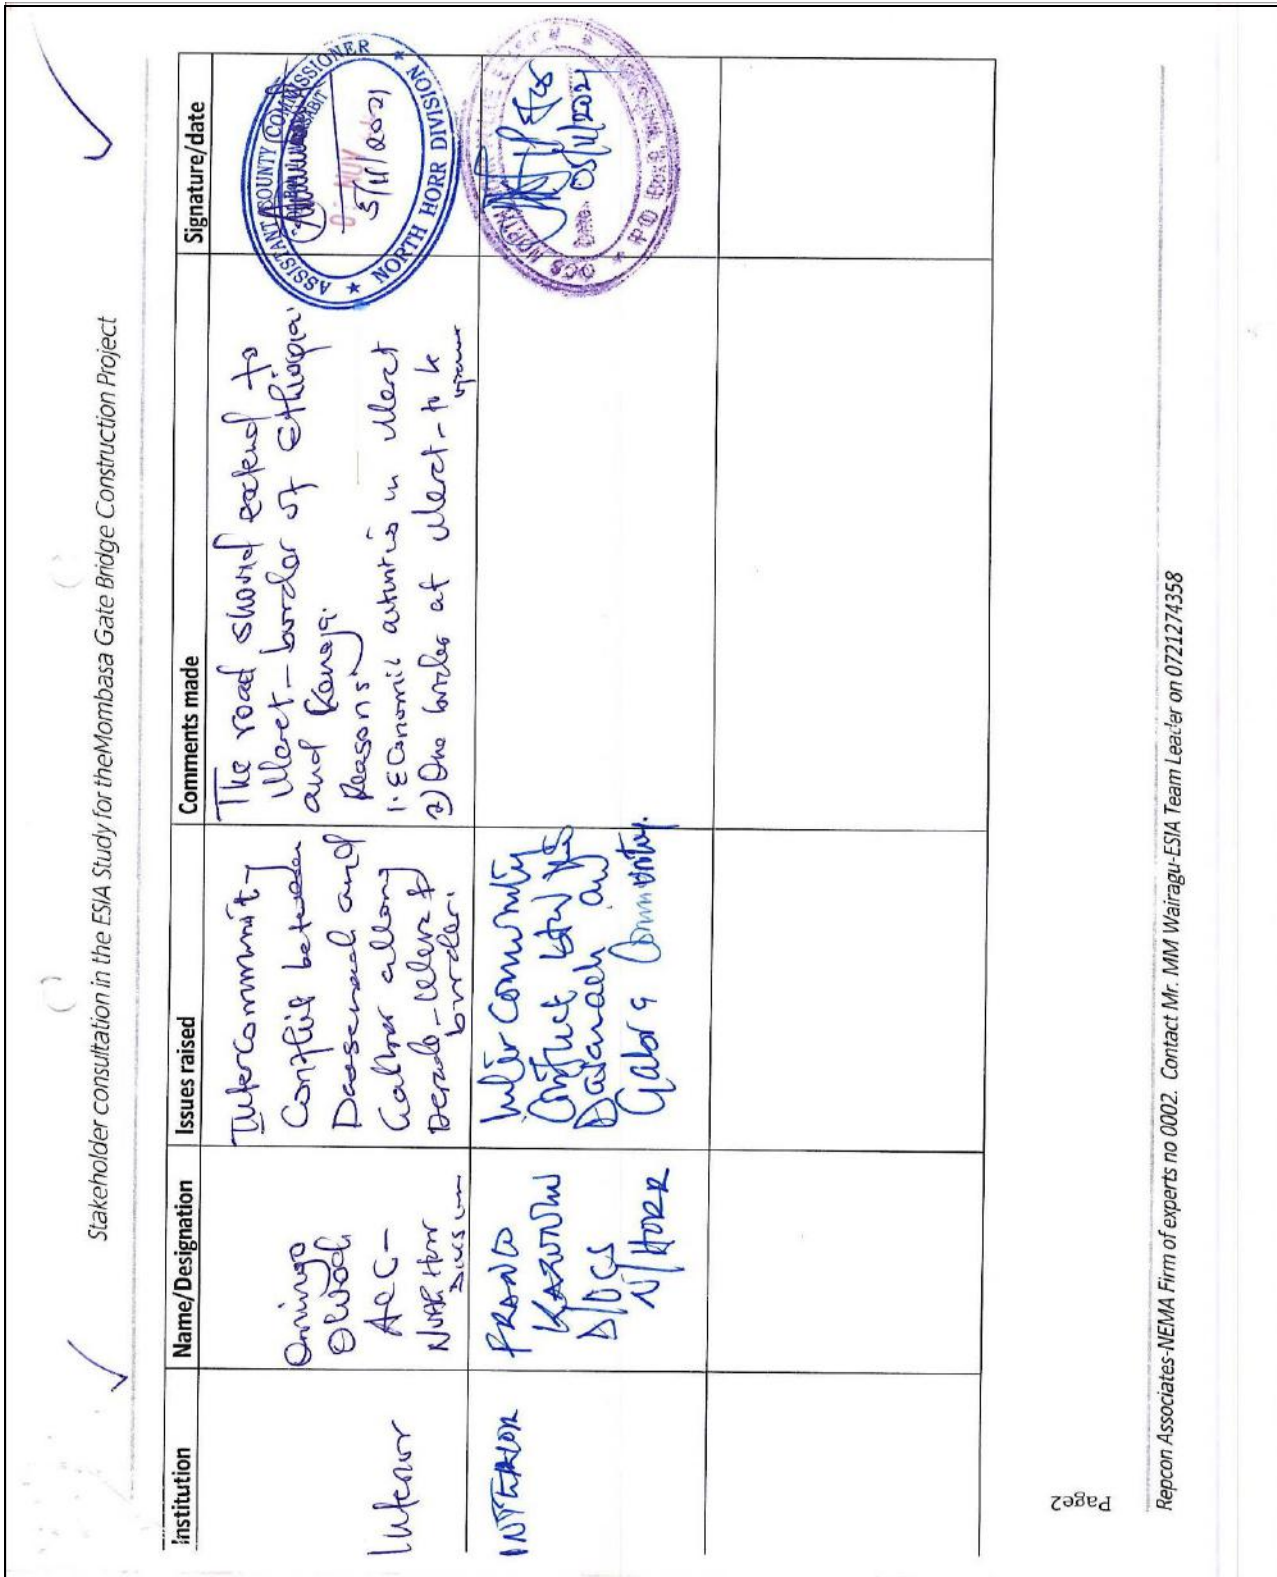 Stakeholder consultation in the ESIA Study for theMombasa Gate Bridge Construction Project
Institution
Name/Designation
Issues raised
Comments made
Signature/date
Interior
Omingo
Olwoch
ACC-
North Horr
Division
Intercommunity
Conflict between
and
along
border.
The road should extend to
Ileret - border of Ethiopia
and Kenya.
Reasons
1. Economic activities in Ileret
2) One border at Ileret - to be
ASSISTANT COUNTY COMMISSIONER
NORTH HORR DIVISION
5/11/2021
INTERIOR
D/OCS
N/HORR
Inter Community
Conflict btw
and
Community.
OCS NORTH
DATE
05/11/2021
P O Box
Page2
Repcon Associates-NEMA Firm of experts no 0002. Contact Mr. MM Wairagu-ESIA Team Leader on 0721274358